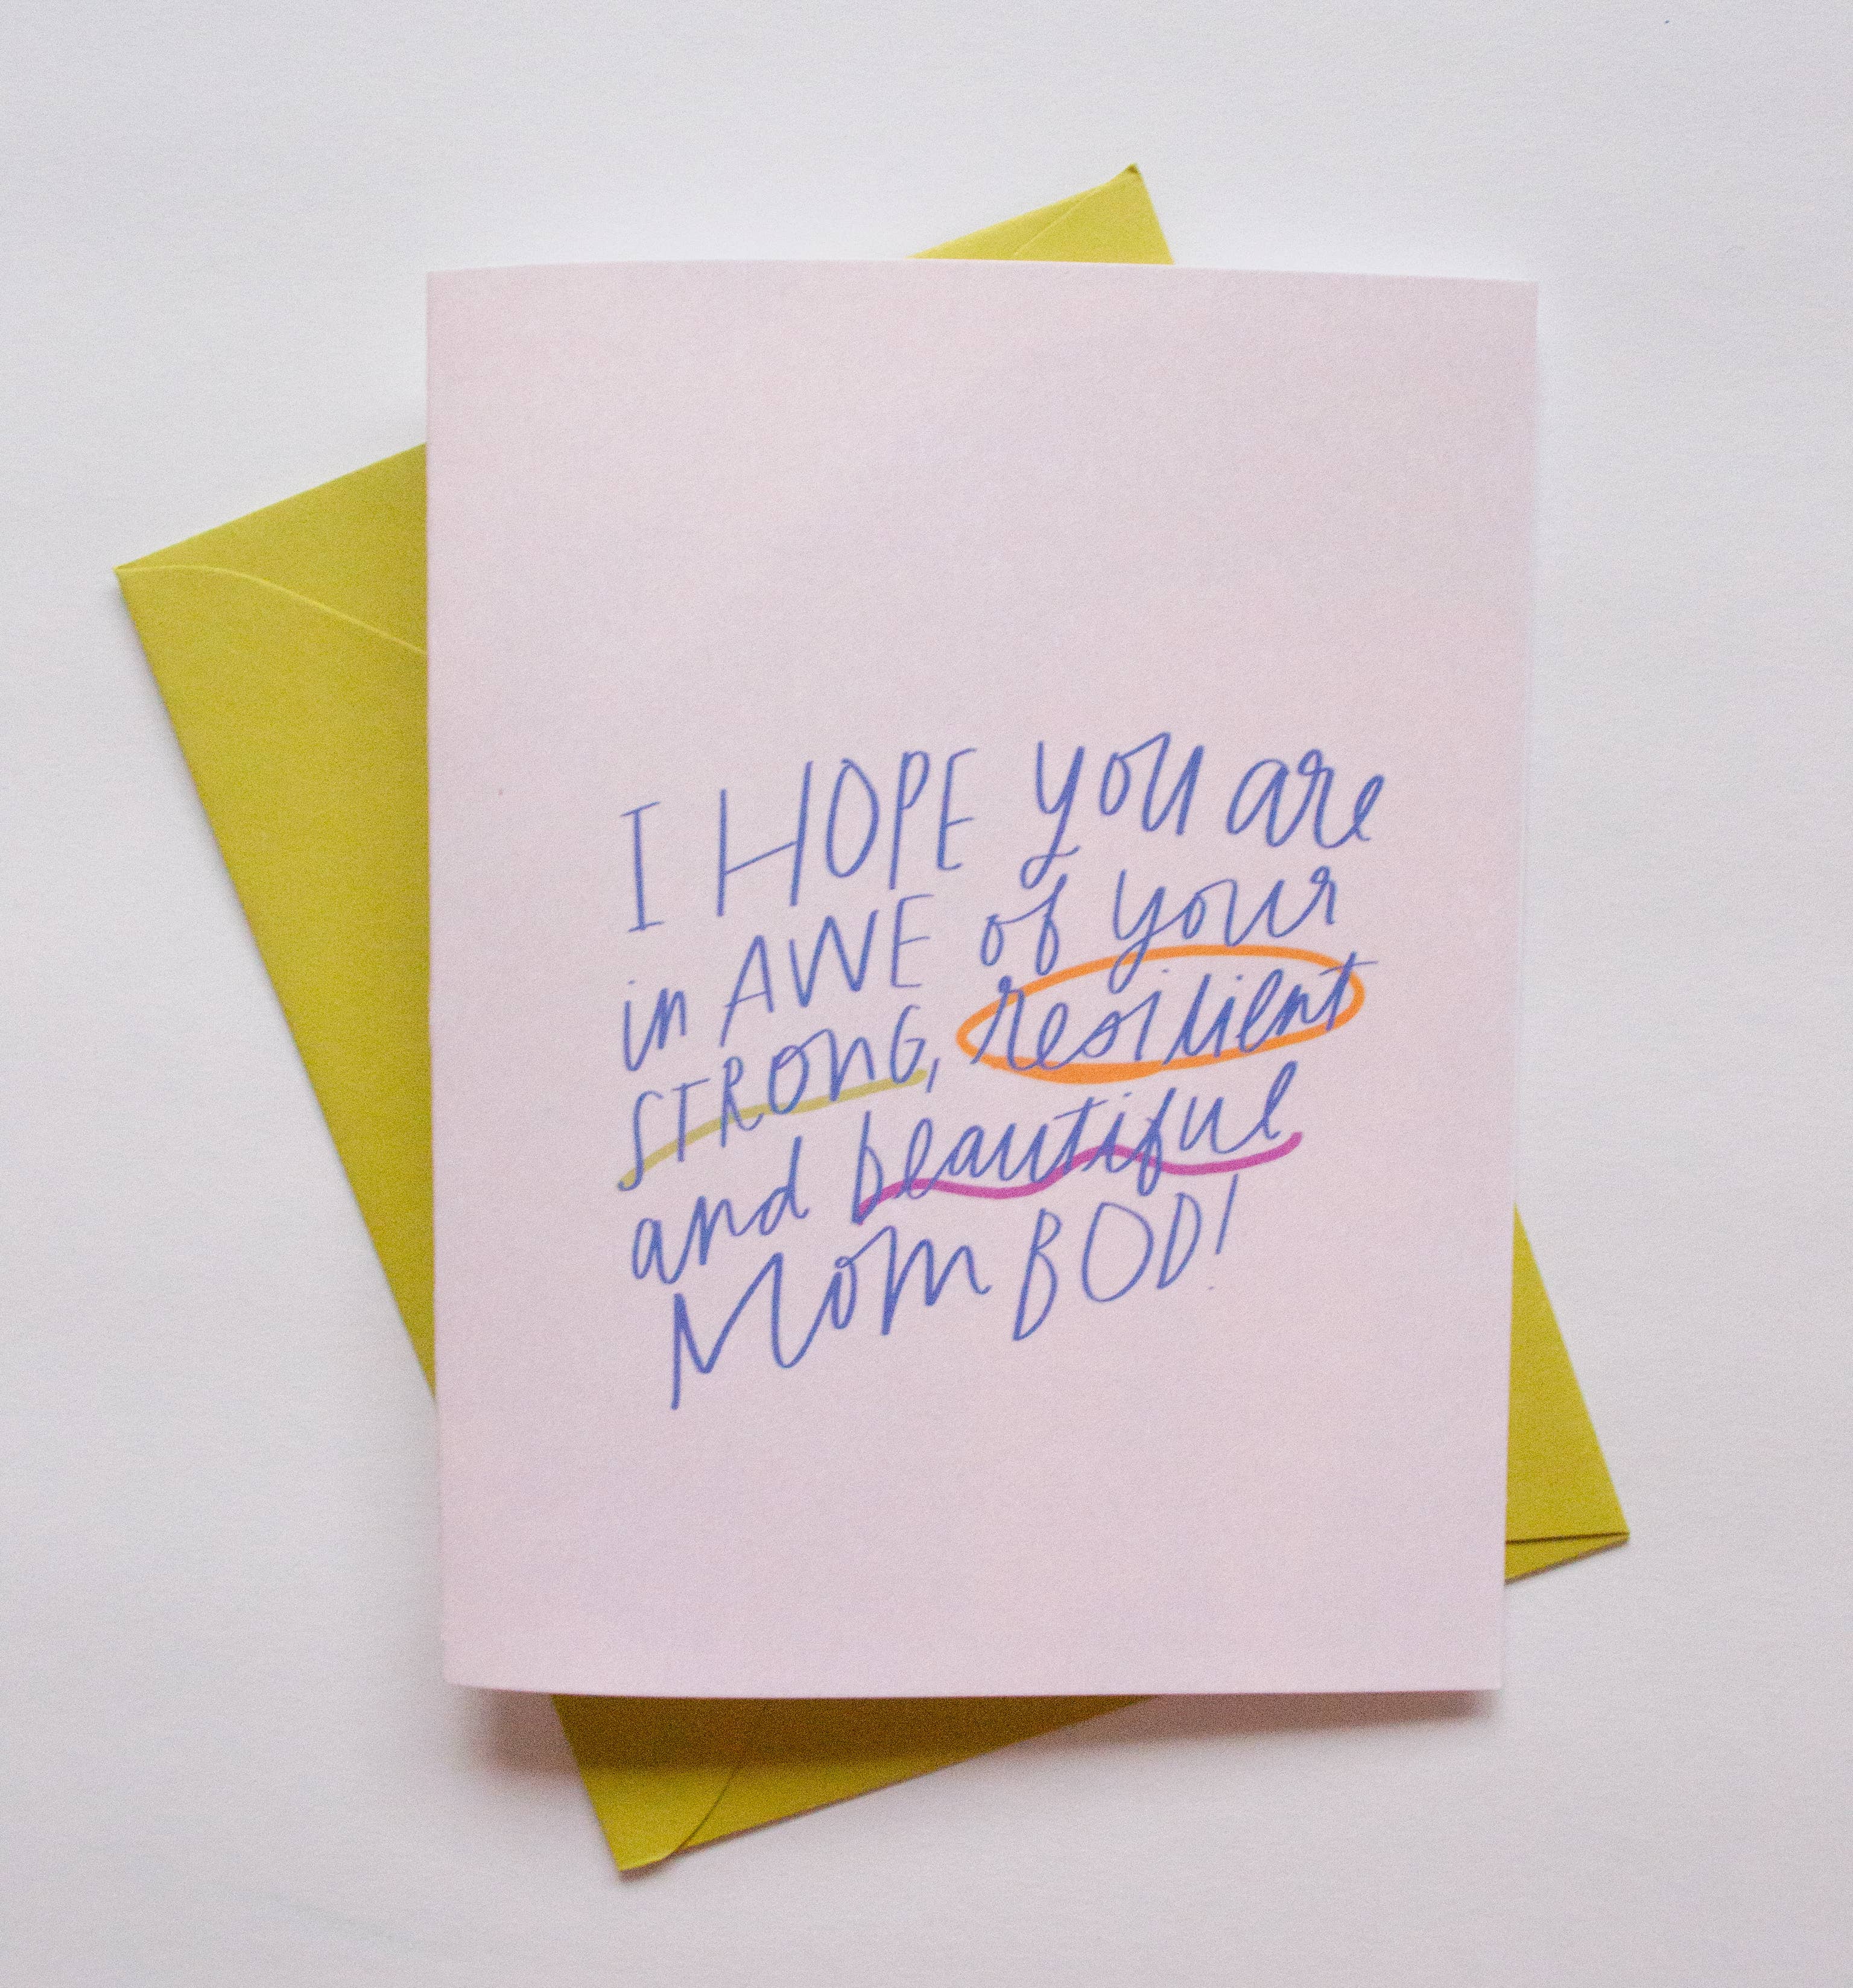 I HOPE you are
in AWE of your
STRONG, resilient
and beautiful
MOM BOD!